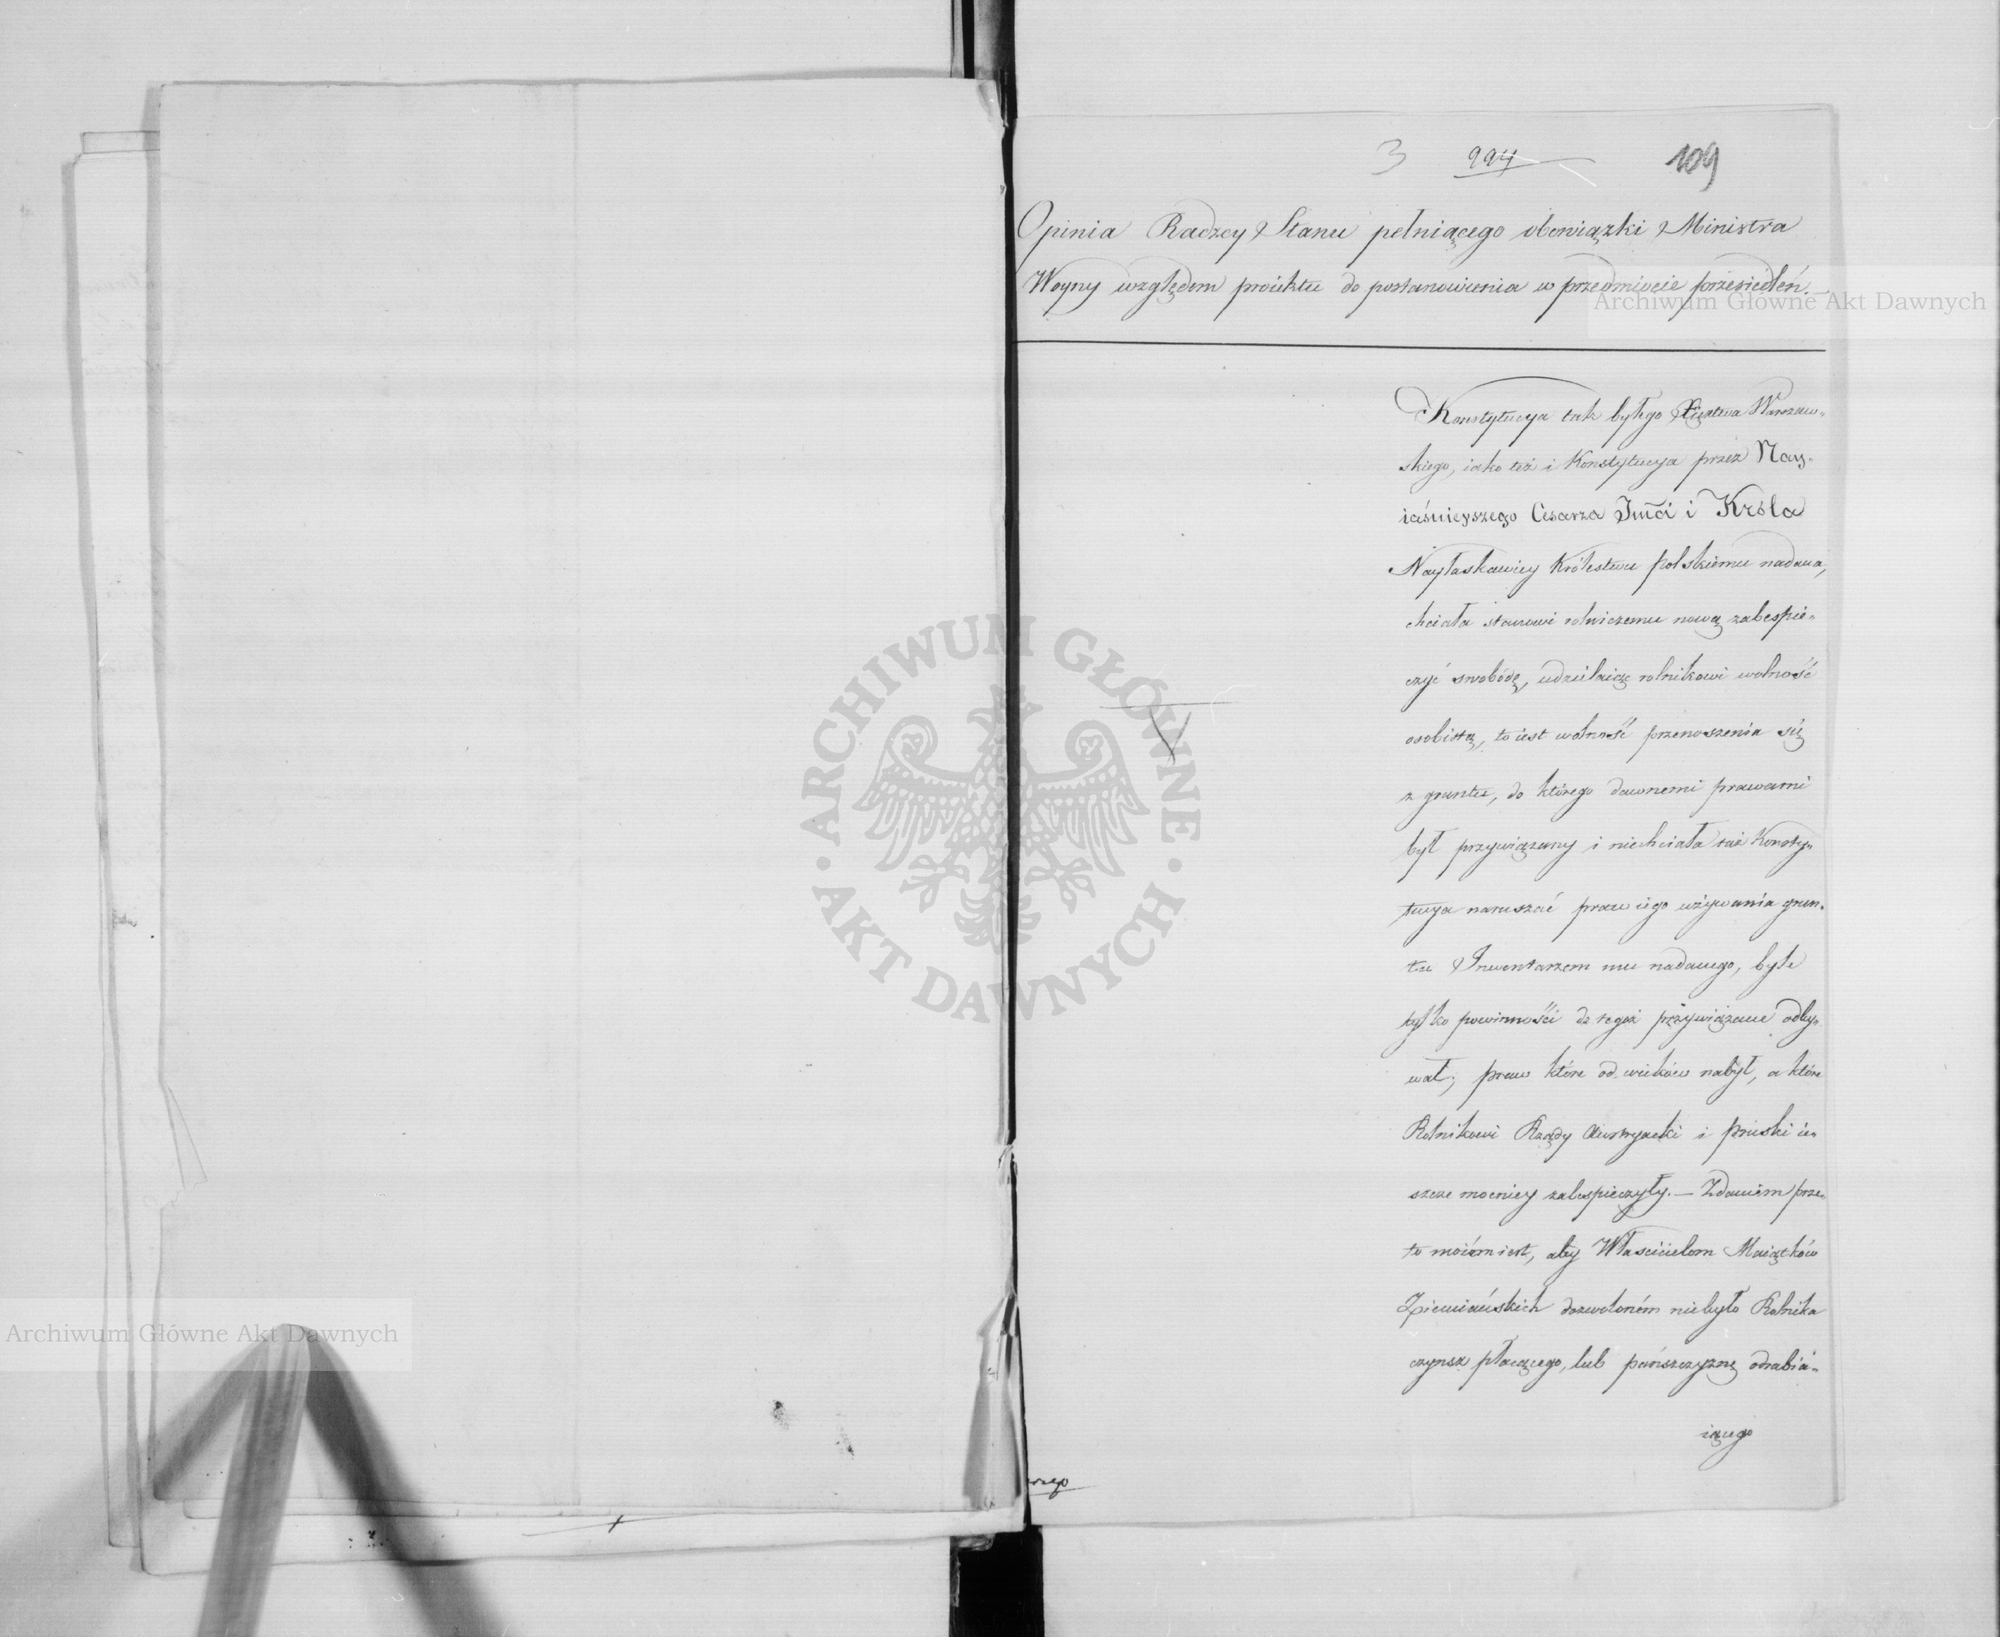 3 994 109
Opinia Radzcy Stanu pełniącego obowiązki Ministra
Woyny względem proiektu do postanowienia w przedmiocie przesiedleń.
Archiwum Główne Akt Dawnych
Konstytucya tak byłego Xięstwa Warszaw-
skiego, iako też i Konstytucya przez Nay-
iaśnieyszego Cesarza Jmći i Króla
Nayłaskawiey Królestwu polskiemu nadana,
chciała stanowi rolniczemu nową zabespie-
czyć swobodę, udzielaiąc rolnikowi wolność
osobistą, to iest wolność przenoszenia się
z gruntu, do którego dawnemi prawami
był przywiązany i niechciała taż Konsty-
tucya naruszać praw iego używania grun-
tu Inwentarzem mu nadanego, byle
tylko powinności do tegoż przywiązane odby-
wał; praw które od wieków nabył, a które
Rolnikowi Rządy Austryacki i pruski ie-
szcze mocniey zabespieczyły. – Zdaniem prze-
to moiém iest, aby Właścicielom Maiątków
Ziemiańskich dozwoloném niebyło Rolnika
czynsz płacącego, lub pańszczyznę odrabia-
iącego
ARCHIWUM GŁÓWNE
· AKT DAWNYCH ·
Archiwum Główne Akt Dawnych